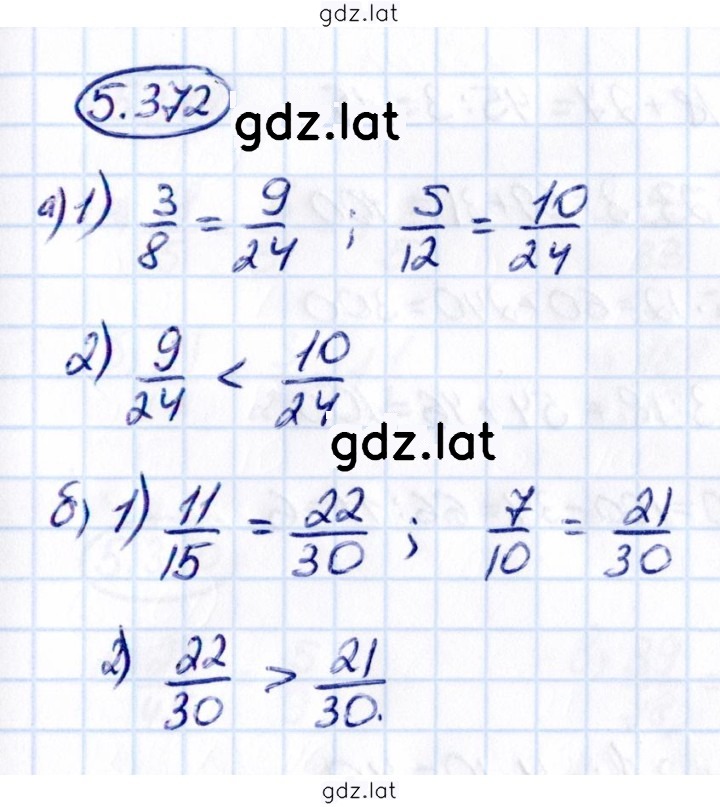 gdz.lat
5.372
gdz.lat
а) 1) 3/8 = 9/24 ; 5/12 = 10/24
2) 9/24 < 10/24
gdz.lat
б) 1) 11/15 = 22/30 ; 7/10 = 21/30
2) 22/30 > 21/30.
gdz.lat